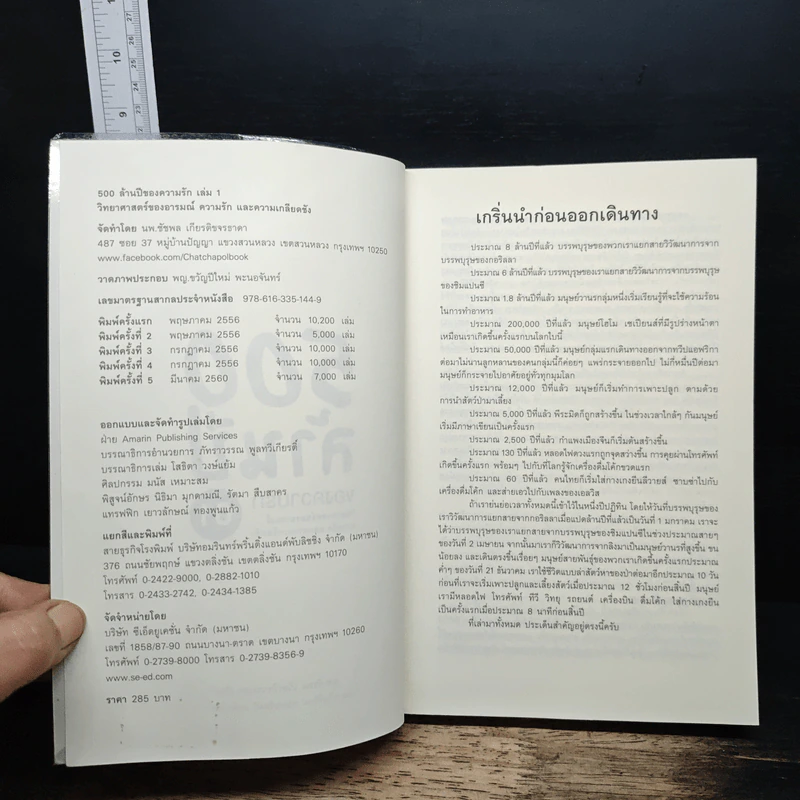 500 ล้านปีของความรัก เล่ม 1
วิทยาศาสตร์ของอารมณ์ ความรัก และความเกลียดชัง
จัดทำโดย นพ.ชัชพล เกียรติขจรธาดา
487 ซอย 37 หมู่บ้านปัญญา แขวงสวนหลวง เขตสวนหลวง กรุงเทพฯ 10250
www.facebook.com/Chatchapolbook
วาดภาพประกอบ พญ.ขวัญปีใหม่ พะนอจันทร์
เลขมาตรฐานสากลประจำหนังสือ 978-616-335-144-9
พิมพ์ครั้งแรก พฤษภาคม 2556 จำนวน 10,200 เล่ม
พิมพ์ครั้งที่ 2 พฤษภาคม 2556 จำนวน 5,000 เล่ม
พิมพ์ครั้งที่ 3 กรกฎาคม 2556 จำนวน 10,000 เล่ม
พิมพ์ครั้งที่ 4 กรกฎาคม 2556 จำนวน 10,000 เล่ม
พิมพ์ครั้งที่ 5 มีนาคม 2560 จำนวน 7,000 เล่ม
ออกแบบและจัดทำรูปเล่มโดย
ฝ่าย Amarin Publishing Services
บรรณาธิการอำนวยการ ภัทราวรรณ พูลทวีเกียรติ์
บรรณาธิการเล่ม โสธิตา วงษ์แย้ม
ศิลปกรรม มนัส เหมาะสม
พิสูจน์อักษร นิธิมา มุกดามณี, รัตมา สืบสาคร
แทรฟฟิก เยาวลักษณ์ ทองพูนแก้ว
แยกสีและพิมพ์ที่
สายธุรกิจโรงพิมพ์ บริษัทอมรินทร์พริ้นติ้งแอนด์พับลิชชิ่ง จำกัด (มหาชน)
376 ถนนชัยพฤกษ์ แขวงตลิ่งชัน เขตตลิ่งชัน กรุงเทพฯ 10170
โทรศัพท์ 0-2422-9000, 0-2882-1010
โทรสาร 0-2433-2742, 0-2434-1385
จัดจำหน่ายโดย
บริษัท ซีเอ็ดยูเคชั่น จำกัด (มหาชน)
เลขที่ 1858/87-90 ถนนบางนา-ตราด เขตบางนา กรุงเทพฯ 10260
โทรศัพท์ 0-2739-8000 โทรสาร 0-2739-8356-9
www.se-ed.com
ราคา 285 บาท
เกริ่นนำก่อนออกเดินทาง
ประมาณ 8 ล้านปีที่แล้ว บรรพบุรุษของพวกเราแยกสายวิวัฒนาการจาก
บรรพบุรุษของกอริลลา
ประมาณ 6 ล้านปีที่แล้ว บรรพบุรุษของเราแยกสายวิวัฒนาการจากบรรพบุรุษ
ของชิมแปนซี
ประมาณ 1.8 ล้านปีที่แล้ว มนุษย์วานรกลุ่มหนึ่งเริ่มเรียนรู้ที่จะใช้ความร้อน
ในการทำอาหาร
ประมาณ 200,000 ปีที่แล้ว มนุษย์โฮโม เซเปียนส์ที่มีรูปร่างหน้าตา
เหมือนเราเกิดขึ้นครั้งแรกบนโลกใบนี้
ประมาณ 50,000 ปีที่แล้ว มนุษย์กลุ่มแรกเดินทางออกจากทวีปแอฟริกา
ต่อมาไม่นานลูกหลานของคนกลุ่มนี้ก็ค่อยๆ แพร่กระจายออกไป ไม่กี่หมื่นปีต่อมา
มนุษย์ก็กระจายไปอาศัยอยู่ทั่วทุกมุมโลก
ประมาณ 12,000 ปีที่แล้ว มนุษย์ก็เริ่มทำการเพาะปลูก ตามด้วย
การนำสัตว์ป่ามาเลี้ยง
ประมาณ 5,000 ปีที่แล้ว พีระมิดก็ถูกสร้างขึ้น ในช่วงเวลาใกล้ๆ กันมนุษย์
เริ่มมีภาษาเขียนเป็นครั้งแรก
ประมาณ 2,500 ปีที่แล้ว กำแพงเมืองจีนก็เริ่มต้นสร้างขึ้น
ประมาณ 130 ปีที่แล้ว หลอดไฟดวงแรกถูกจุดสว่างขึ้น การคุยผ่านโทรศัพท์
เกิดขึ้นครั้งแรก พร้อมๆ ไปกับที่โลกรู้จักเครื่องดื่มโค้กขวดแรก
ประมาณ 60 ปีที่แล้ว คนไทยก็เริ่มใส่กางเกงยีนลีวายส์ ซาบซ่าไปกับ
เครื่องดื่มโค้ก และส่ายเอวไปกับเพลงของเอลวิส
ถ้าเราย่นย่อเวลาทั้งหมดนี้เข้าไว้ในหนึ่งปีปฏิทิน โดยให้วันที่บรรพบุรุษของ
เราวิวัฒนาการแยกสายจากกอริลลาเมื่อแปดล้านปีที่แล้วเป็นวันที่ 1 มกราคม เราจะ
ได้ว่าบรรพบุรุษของเราแยกสายจากบรรพบุรุษของชิมแปนซีในช่วงประมาณสายๆ
ของวันที่ 2 เมษายน จากนั้นมาเราก็วิวัฒนาการจากลิงมาเป็นมนุษย์วานรที่สูงขึ้น ขน
น้อยลง และเดินตรงขึ้นเรื่อยๆ มนุษย์สายพันธุ์ของพวกเราเกิดขึ้นครั้งแรกประมาณ
ค่ำๆ ของวันที่ 21 ธันวาคม เราใช้ชีวิตแบบล่าสัตว์หาของป่าต่อมาอีกประมาณ 10 วัน
ก่อนที่เราจะเริ่มเพาะปลูกและเลี้ยงสัตว์เมื่อประมาณ 12 ชั่วโมงก่อนสิ้นปี มนุษย์
เรามีหลอดไฟ โทรศัพท์ ทีวี วิทยุ รถยนต์ เครื่องบิน ดื่มโค้ก ใส่กางเกงยีน
เป็นครั้งแรกเมื่อประมาณ 8 นาทีก่อนสิ้นปี
ที่เล่ามาทั้งหมด ประเด็นสำคัญอยู่ตรงนี้ครับ